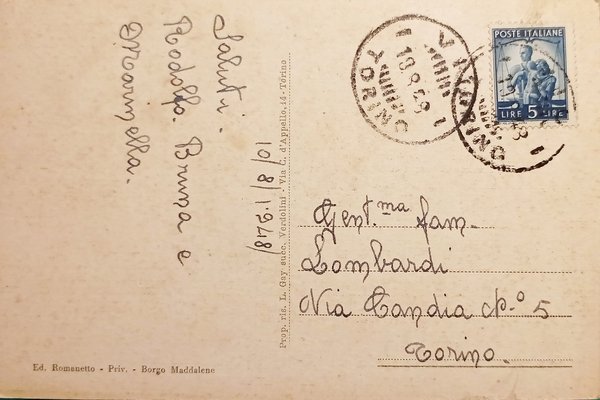 Saluti -
Rodolfo. Bruna e
Marinella.
10/8/1948/
Prop. ris. L. Gay succ. Verdolini - Via C. d'Appello, 14 - Torino
Ed. Romanetto - Priv. - Borgo Maddalene
POSTE ITALIANE
LIRE 5 LIRE
TORINO
TORINO
Gent.ma fam.
Lombardi
Via Candia N.o 5
Torino.